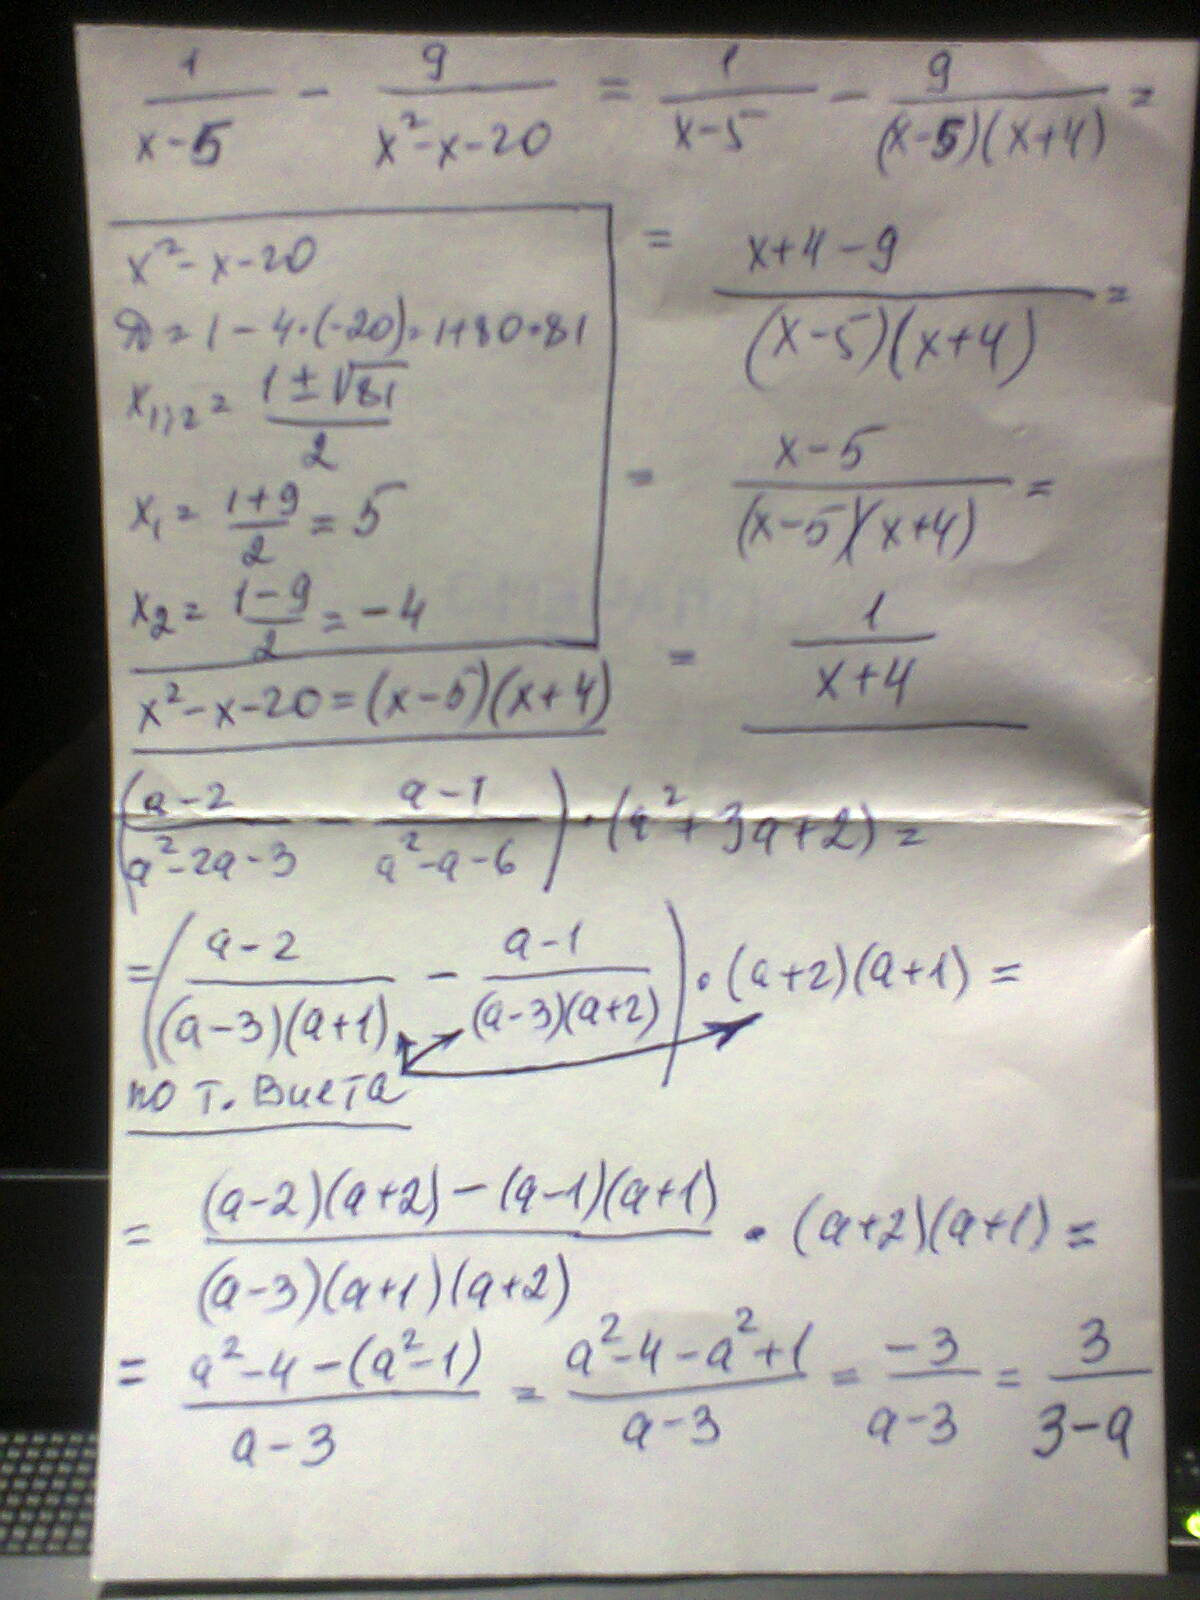 1/(x-5) - 9/(x²-x-20) = 1/(x-5) - 9/((x-5)(x+4)) =
x²-x-20
D = 1-4·(-20) = 1+80=81
x₁,₂ = (1±√81)/2
x₁ = (1+9)/2 = 5
x₂ = (1-9)/2 = -4
x²-x-20=(x-5)(x+4)
= (x+4-9)/((x-5)(x+4)) =
= (x-5)/((x-5)(x+4)) =
= 1/(x+4)
((a-2)/(a²-2a-3) - (a-1)/(a²-a-6)) · (a²+3a+2) =
= ((a-2)/((a-3)(a+1)) - (a-1)/((a-3)(a+2))) · (a+2)(a+1) =
по т. Виета
= ((a-2)(a+2)-(a-1)(a+1))/((a-3)(a+1)(a+2)) · (a+2)(a+1) =
= (a²-4-(a²-1))/(a-3) = (a²-4-a²+1)/(a-3) = -3/(a-3) = 3/(3-a)